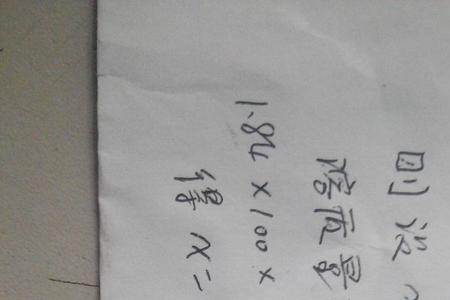 则设
溶液量
1.84×100×
得x=